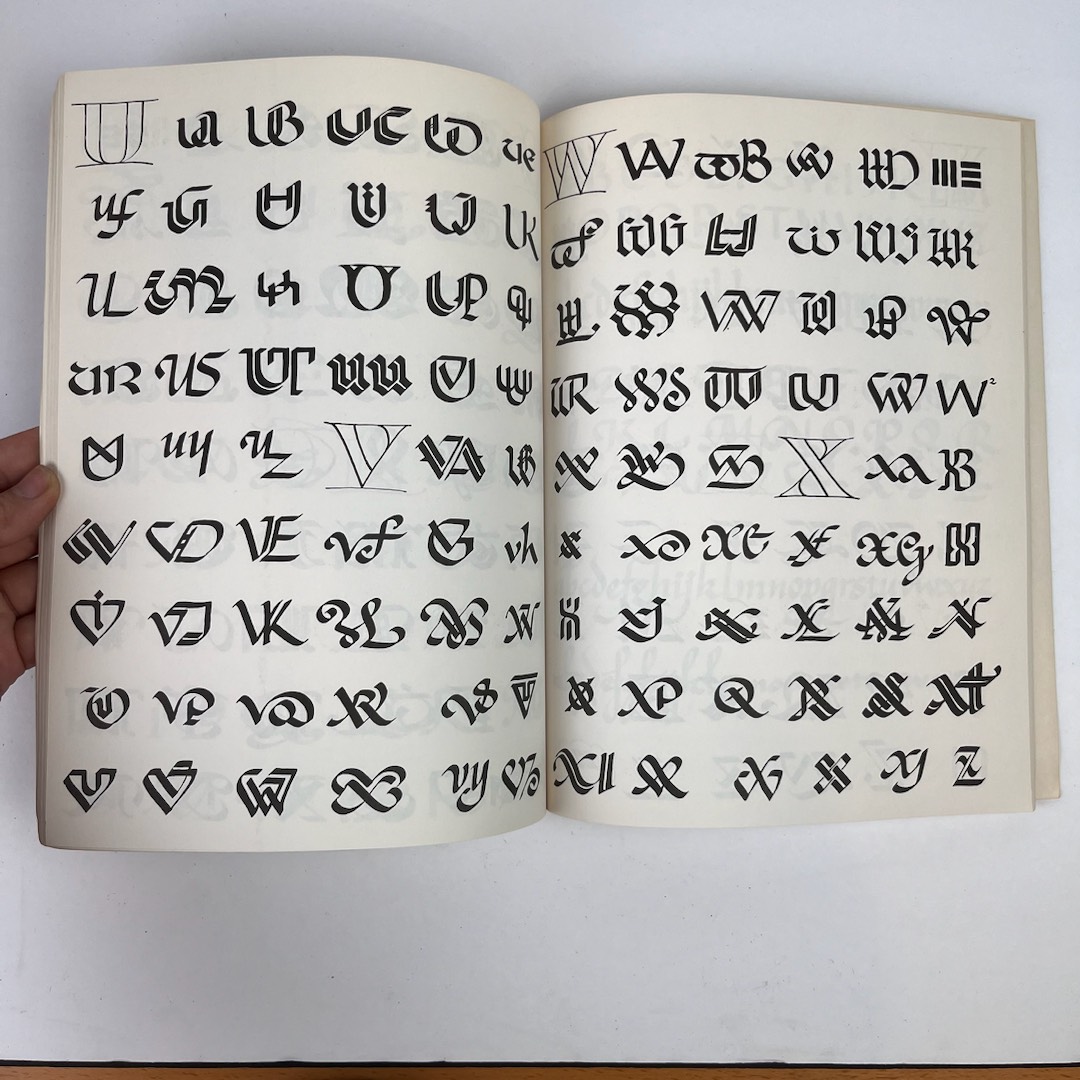 U UA UB UC UD ue
uf UG UH UI UJ UK
UL UM un UO UP qu
UR US UT uu UV UW
UX uy uz V VA VB
VC VD VE vf VG vh
VI VJ VK VL VM VN
VO VP VQ VR VS VT
VU VV VW VX vy VZ
W WA WB WC WD WE
wf WG WH WI WJ WK
WL WM WN WO WP WQ
WR WS WT WU WV W²
WX WY WZ X XA XB
XC XD XE XF XG XH
XI XJ XK XL XM XN
XO XP XQ XR XS XT
XU XV XW XX XY XZ